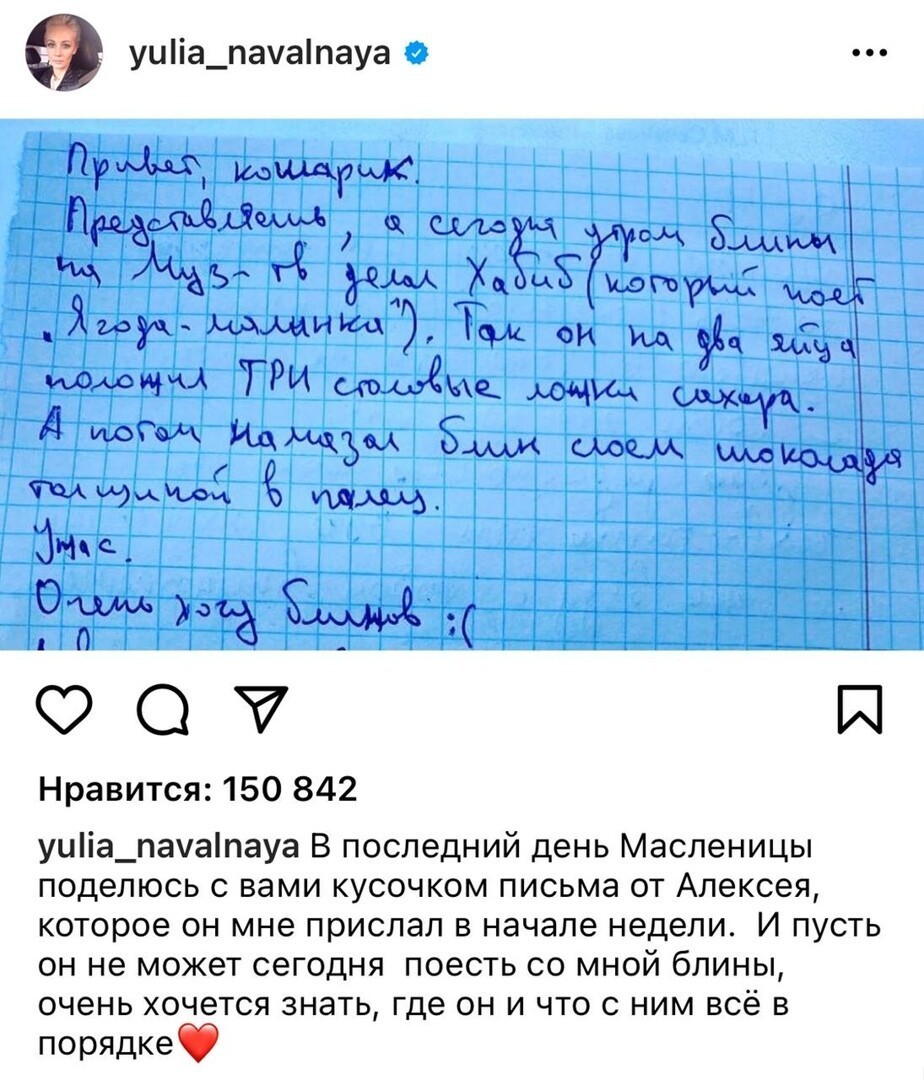 yulia_navalnaya
Привет, кошарик.
Представляешь, а сегодня утром блины
на Муз-тв делал Хабиб (который поет
"Ягода-малинка"). Так он на два яйца
положил ТРИ столовые ложки сахара.
А потом намазал блин слоем шоколада
толщиной в палец.
Ужас.
Очень хочу блинов :(
Нравится: 150 842
yulia_navalnaya В последний день Масленицы
поделюсь с вами кусочком письма от Алексея,
которое он мне прислал в начале недели. И пусть
он не может сегодня поесть со мной блины,
очень хочется знать, где он и что с ним всё в
порядке❤️